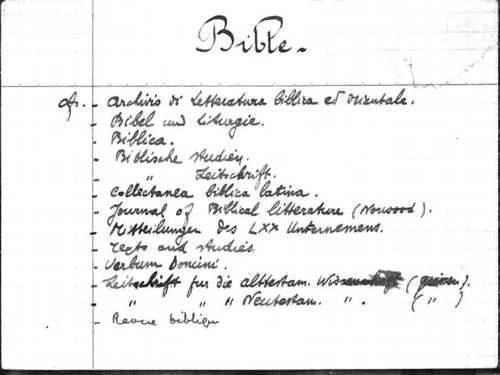 Bible.
cf. - Archivio di Letteratura biblica ed orientale.
- Bibel und Liturgie.
- Biblica.
- Biblische Studien.
- " Zeitschrift.
- Collectanea biblica latina.
- Journal of Biblical litterature (Norwood).
- Mitteilungen des LXX Unternemens.
- Texts and studies.
- Verbum Domini.
- Zeitschrift fur die alttestam. Wissenschaft (giessen).
- " " " Neutestam. " . ( " )
- Revue bibliqu